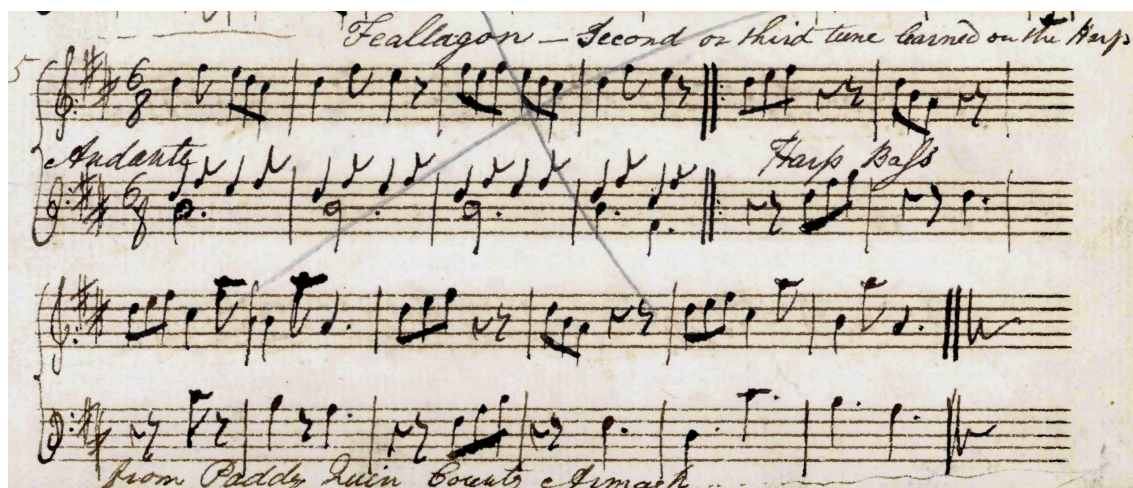 Feallagon — Second or third tune learned on the Harp
5
6
8
Andante
Harp Bass
6
8
from Paddy Quin County Armagh